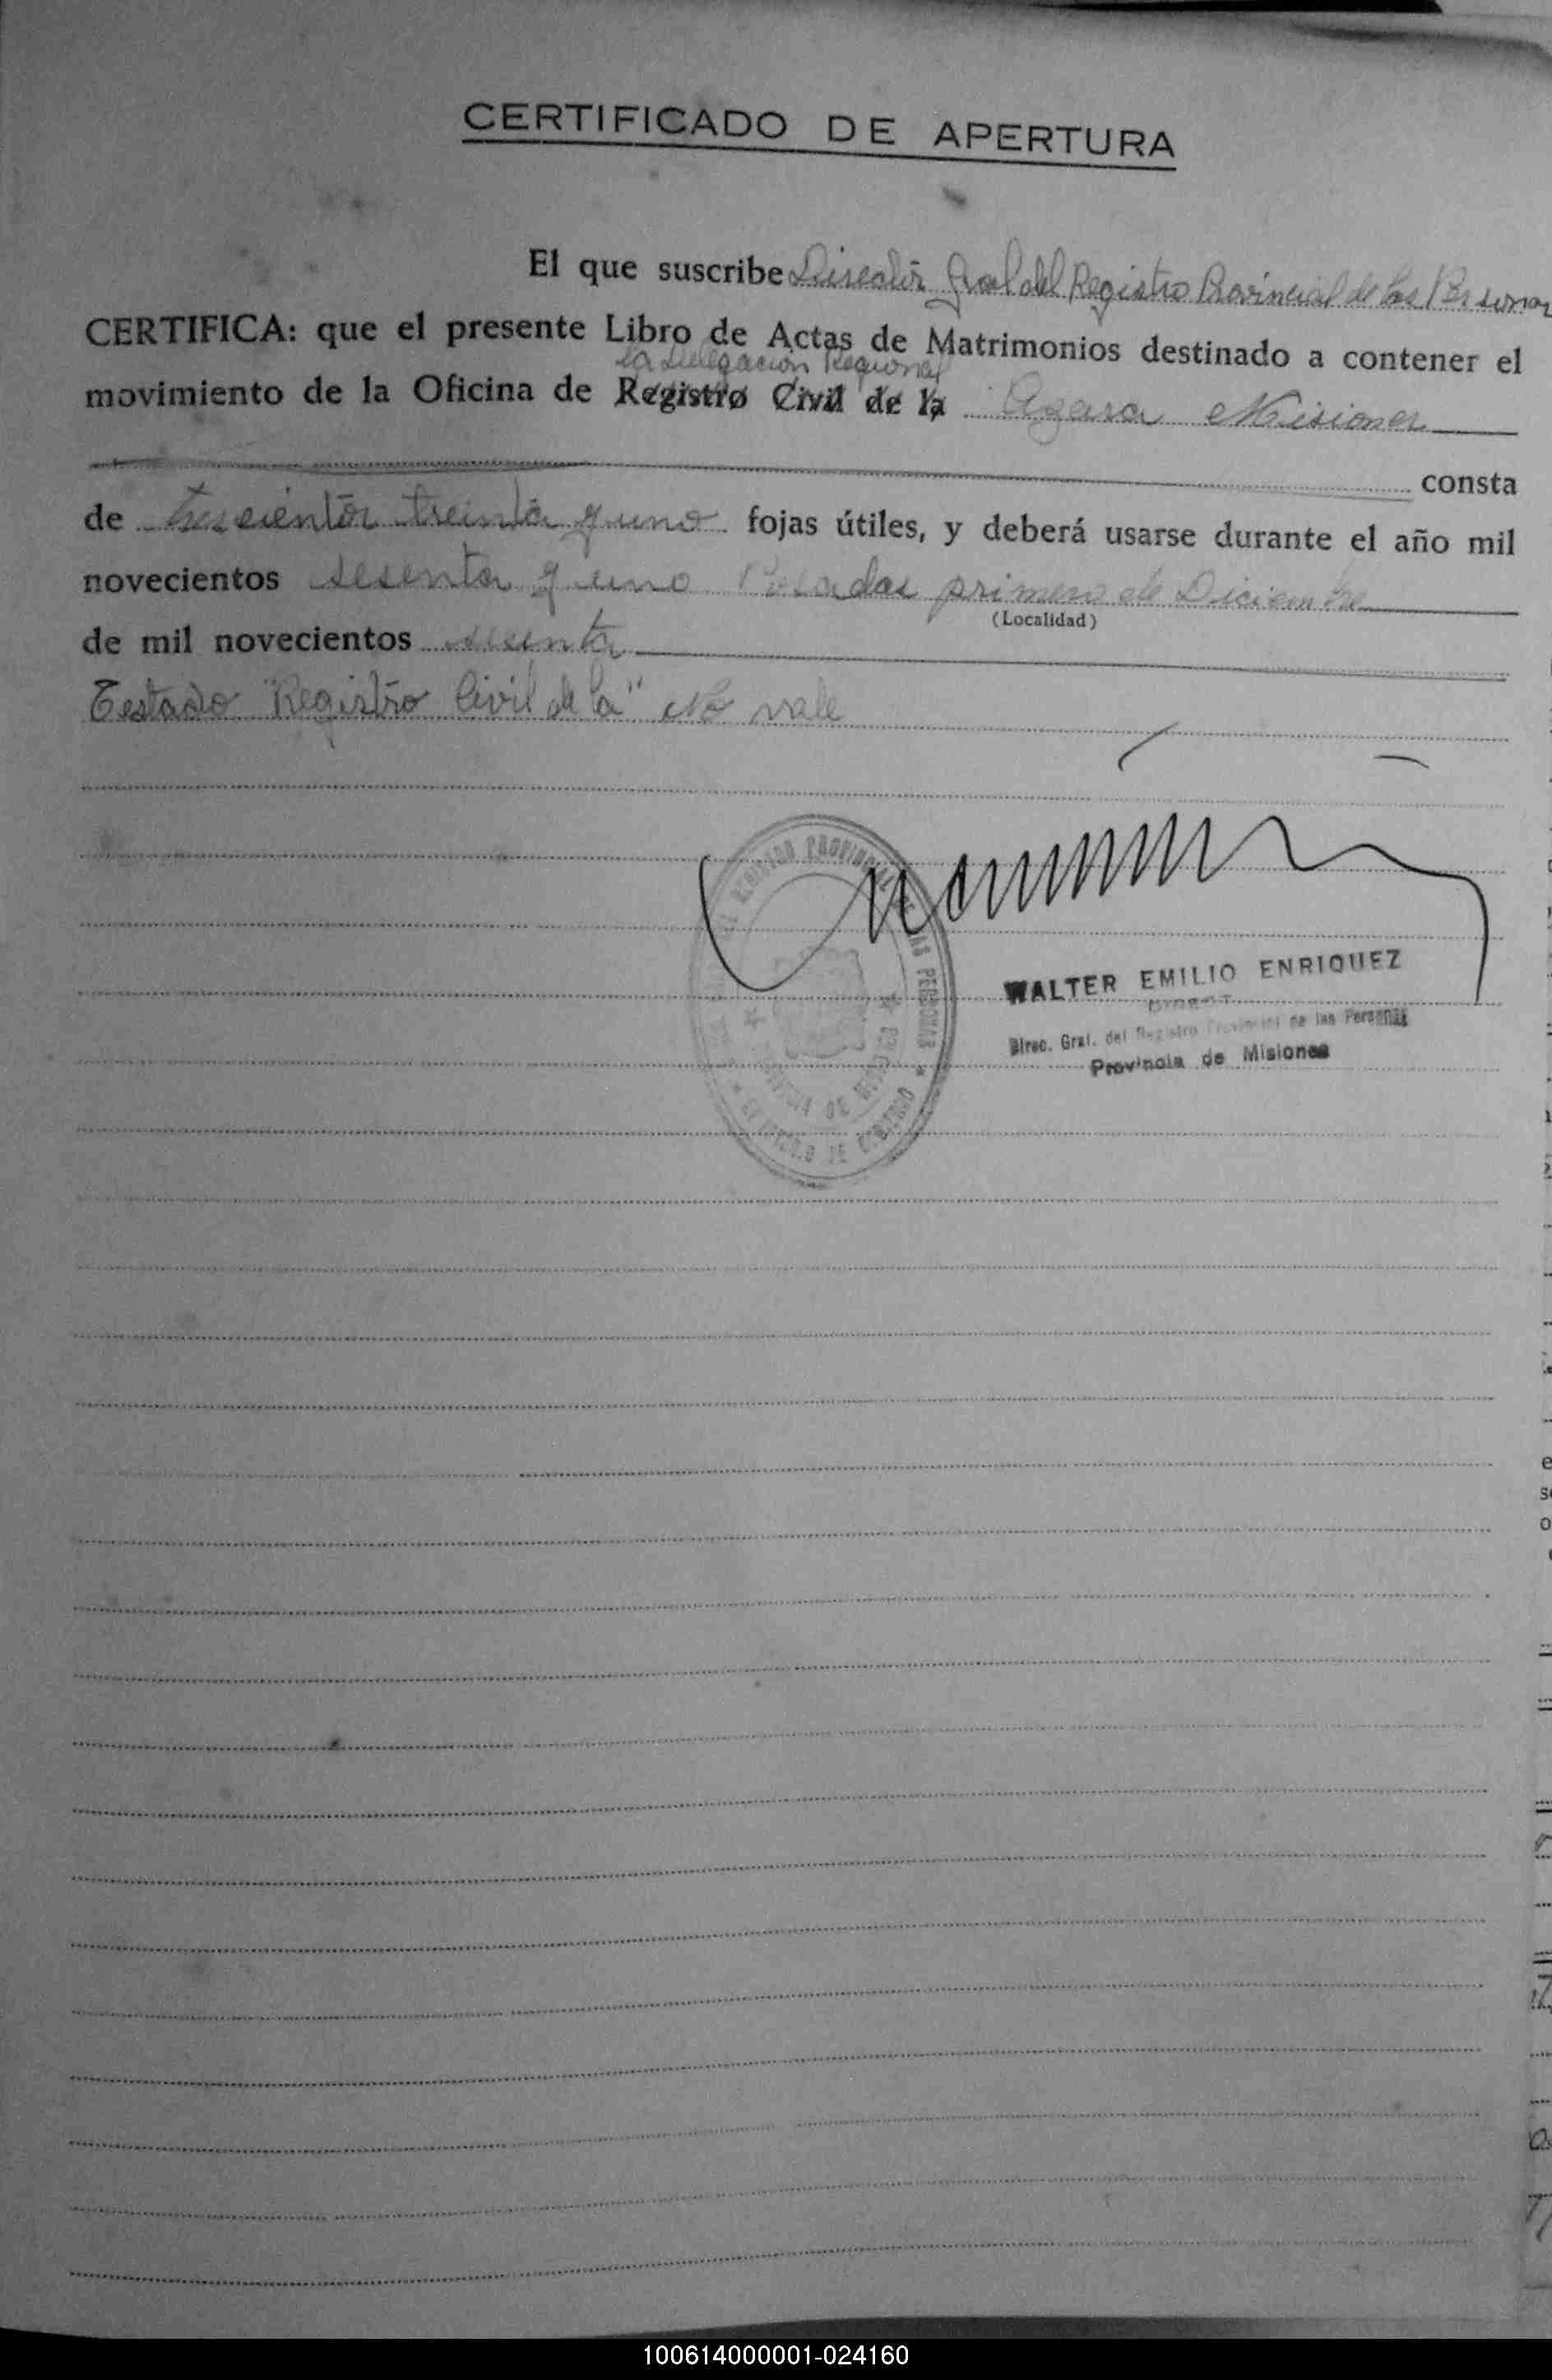 CERTIFICADO DE APERTURA
El que suscribe Director Gral del Registro Provincial de las Personas
CERTIFICA: que el presente Libro de Actas de Matrimonios destinado a contener el
la Delegación Regional
movimiento de la Oficina de Registro Civil de la Azara Misiones
consta
de trescientos treinta y uno fojas útiles, y deberá usarse durante el año mil
novecientos sesenta y uno Posadas primero de Diciembre
(Localidad)
de mil novecientos sesenta
Testado "Registro Civil de la" No vale
WALTER EMILIO ENRIQUEZ
Direc. Gral. del Registro Provincial de las Personas
Provincia de Misiones
REGISTRO PROVINCIAL DE LAS PERSONAS
PROVINCIA DE MISIONES
MINISTERIO DE GOBIERNO
100614000001-024160